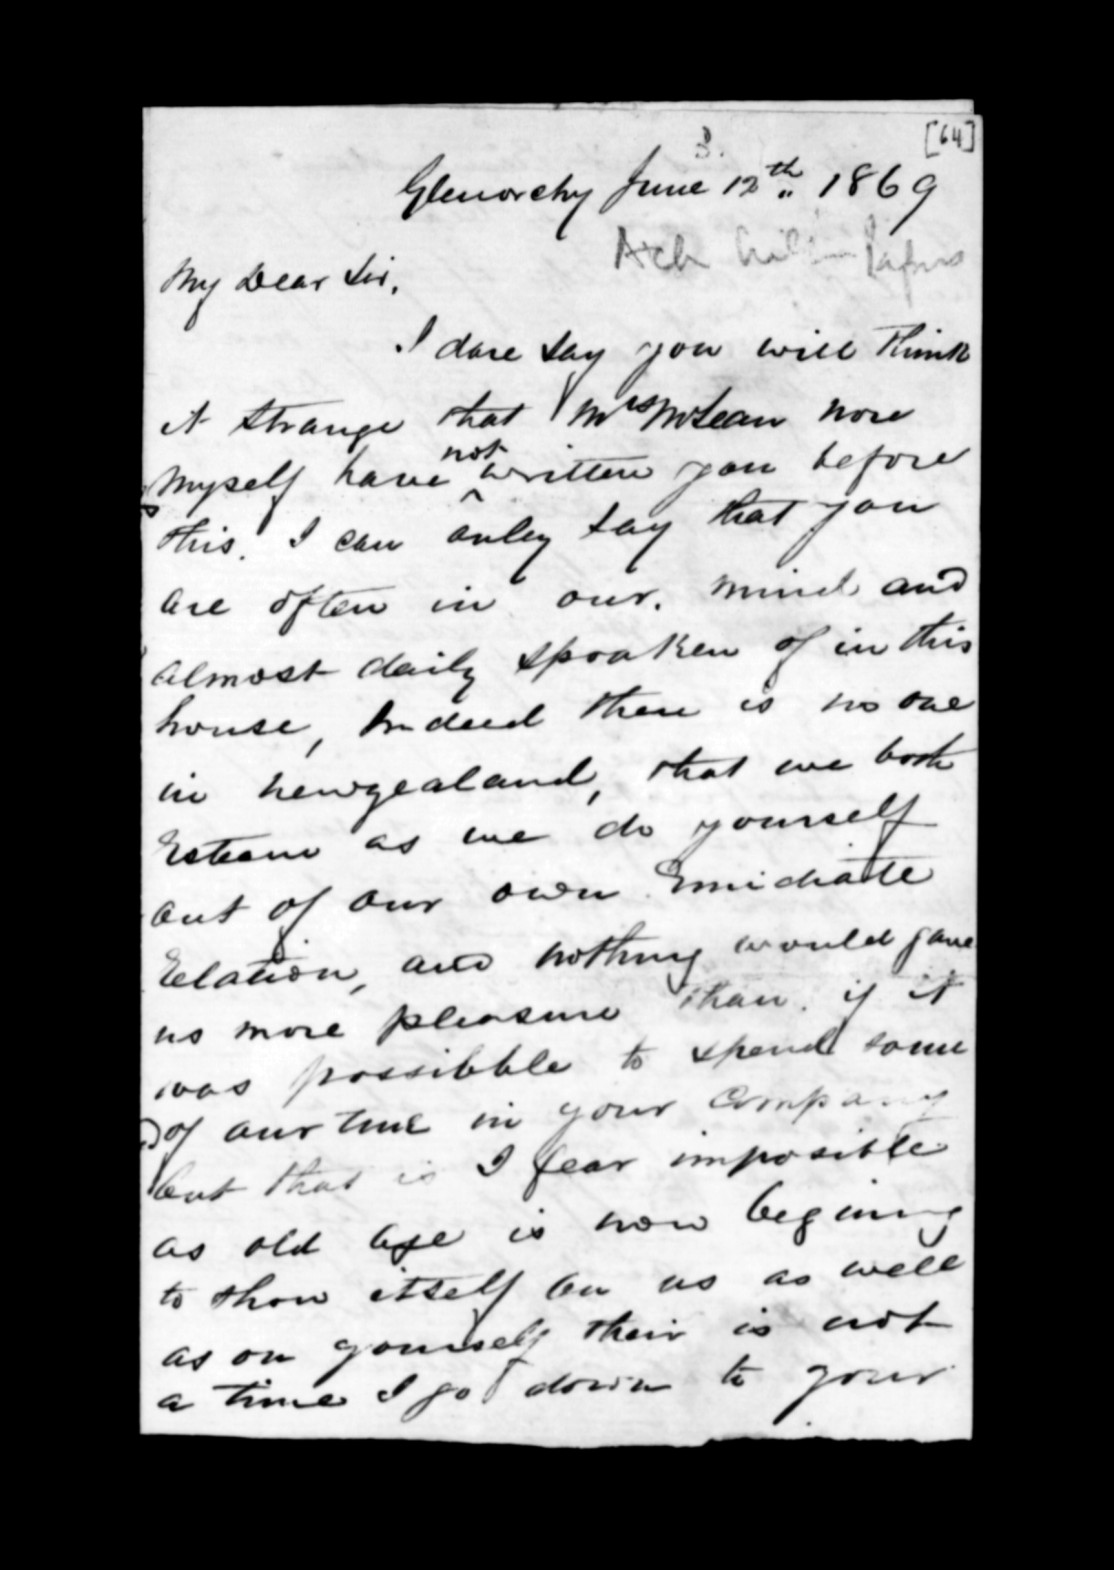 3.
[64]
Glenorchy June 12th 1869
My Dear Sir,
I dare say you will think
it strange that Mrs McLean nore
myself have not written you before
this. I can onley say that you
are often in our. mind and
almost daily spoaken of in this
house, Indeed there is no one
in newzealand, that we both
Esteem as we do yourself
out of our own Emidiate
Relation, and nothing would gave
us more pleasure than. if it
was possibble to spend some
of our time in your Company
but that is I fear imposible
as old age is now begining
to show itself on us as well
as on yourself their is not
a time I go down to your